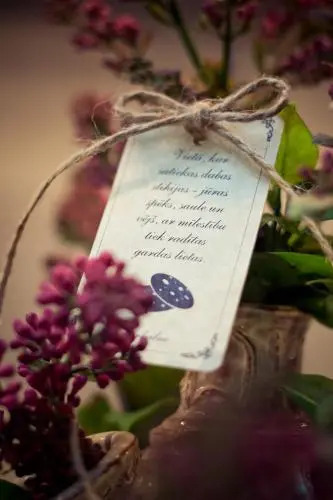 Vietā, kur
satiekas dabas
stihijas - jūras
spēks, saule un
vējš, ar mīlestību
tiek radītas
gardas lietas.